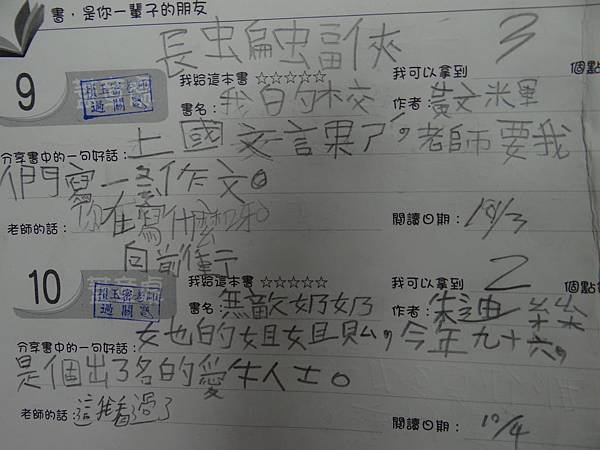 書，是你一輩子的朋友
長虫扁虫畐俠
9 我給這本書 ☆☆☆☆☆ 我可以拿到 3 個點
過關
書名：我白勺木交 作者：黃文米
分享書中的一句好話：上國文言果了，老師要我
們寫一篇作文。
老師的話：你在寫什麼呀 閱讀日期：10/3
向前
10 我給這本書 ☆☆☆☆☆ 我可以拿到 2 個
過關
書名：無敵奶奶 作者：朱迪
分享書中的一句好話：女也的女且女且，今年九十六，
是個出了名的愛牛人士。
老師的話：這看過了 閱讀日期：10/4